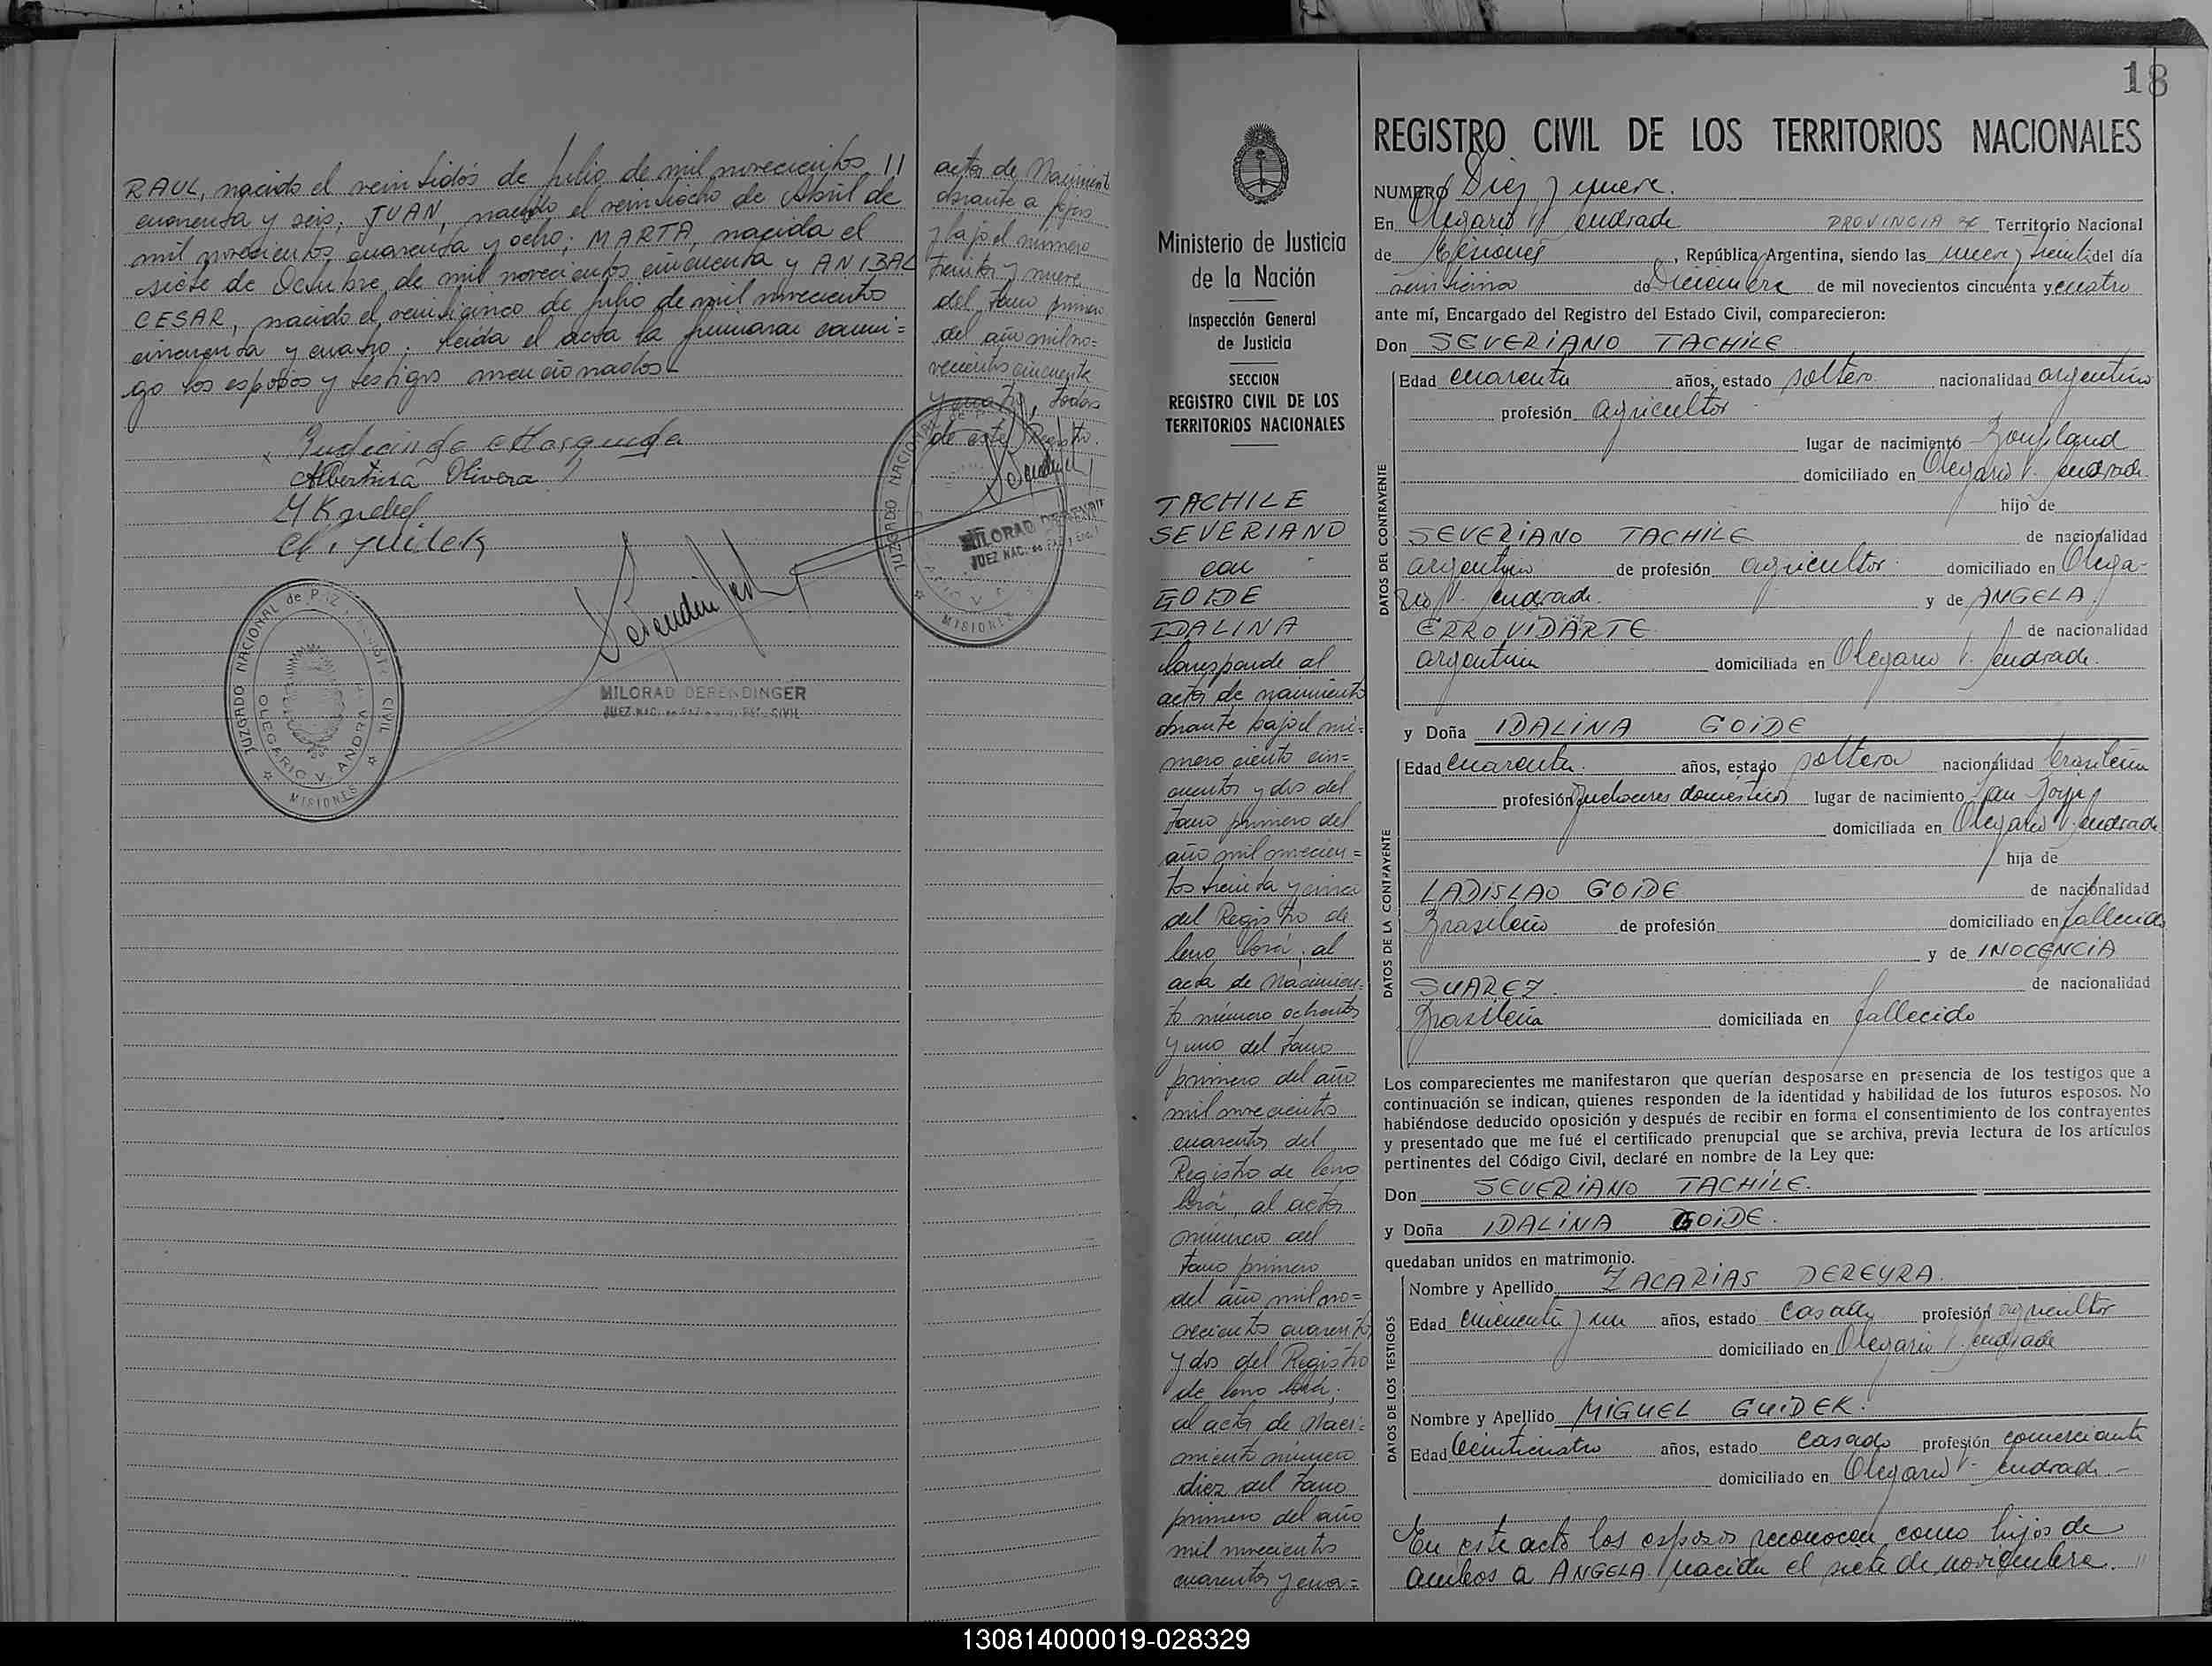 RAUL, nacido el veintidós de Julio de mil novecientos
cuarenta y seis; JUAN, nacido el veintiocho de Abril de
mil novecientos cuarenta y ocho; MARTA, nacida el
siete de Octubre de mil novecientos cincuenta y ANIBAL
CESAR, nacido el veinticinco de Julio de mil novecientos
cincuenta y cuatro; leída el acta la firmaron conmi=
go los esposos y testigos mencionados
Albertina Olivera
JUZGADO NACIONAL de PAZ CIVIL
OLEGARIO V. ANDRA
MISIONES
MILORAD DERENDINGER
acta de Nacimiento
obrante a fojas
y bajo el número
treinta y nueve
del tomo primero
del año mil no=
vecientos cincuenta
y cuatro, todos
de este Registro.
JUZGADO NACIONAL
MILORAD
MISIONES
18
Ministerio de Justicia
de la Nación
Inspección General
de Justicia
SECCION
REGISTRO CIVIL DE LOS
TERRITORIOS NACIONALES
TACHILE
SEVERIANO
con
GOIDE
IDALINA
Corresponde al
acta de nacimiento
obrante bajo el nú=
mero ciento cin=
cuenta y dos del
tomo primero del
año mil novecien=
tos treinta y cinco
del Registro de
acta de Nacimien=
to número ochenta
y uno del tomo
primero del año
mil novecientos
cuarenta del
Registro de
al acta
número del
tomo primero
del año mil no=
vecientos cuarenta
y dos del Registro
de
al acta de Naci=
miento número
diez del tomo
primero del año
mil novecientos
cuarenta y cua=
REGISTRO CIVIL DE LOS TERRITORIOS NACIONALES
NUMERO Diez y nueve.
En Olegario V. Andrade PROVINCIA de Territorio Nacional
de Misiones, República Argentina, siendo las nueve y treinta del día
veintiuno de Diciembre de mil novecientos cincuenta y cuatro
ante mí, Encargado del Registro del Estado Civil, comparecieron:
Don SEVERIANO TACHILE
DATOS DEL CONTRAYENTE
Edad cuarenta años, estado soltero nacionalidad argentino
profesión agricultor
lugar de nacimiento
domiciliado en Olegario V. Andrade
hijo de
SEVERIANO TACHILE de nacionalidad
argentino de profesión agricultor domiciliado en Olega-
rio V. Andrade. y de ANGELA
ERROVIDARTE de nacionalidad
argentina domiciliada en Olegario V. Andrade.
y Doña IDALINA GOIDE
DATOS DE LA CONTRAYENTE
Edad cuarenta. años, estado soltera nacionalidad brasileña
profesión quehaceres domésticos lugar de nacimiento San Borja
domiciliada en Olegario V. Andrade
hija de
LADISLAO GOIDE de nacionalidad
Brasileño de profesión domiciliado en fallecido
y de INOCENCIA
SUAREZ. de nacionalidad
Brasileña domiciliada en fallecido
Los comparecientes me manifestaron que querían desposarse en presencia de los testigos que a
continuación se indican, quienes responden de la identidad y habilidad de los futuros esposos. No
habiéndose deducido oposición y después de recibir en forma el consentimiento de los contrayentes
y presentado que me fué el certificado prenupcial que se archiva, previa lectura de los artículos
pertinentes del Código Civil, declaré en nombre de la Ley que:
Don SEVERIANO TACHILE.
y Doña IDALINA GOIDE.
quedaban unidos en matrimonio.
DATOS DE LOS TESTIGOS
Nombre y Apellido ZACARIAS PEREYRA.
Edad cincuenta y un años, estado casado profesión agricultor
domiciliado en Olegario V. Andrade
Nombre y Apellido MIGUEL GUIDEK.
Edad Veinticuatro años, estado casado profesión comerciante
domiciliado en Olegario V. Andrade.-
En este acto los esposos reconocen como hijos de
ambos a ANGELA nacida el siete de noviembre.
130814000019-028329